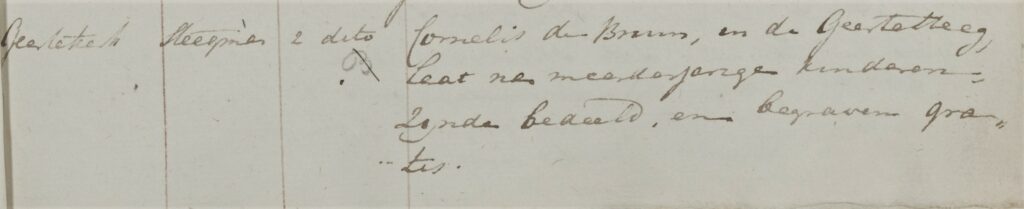 Geertekerk Steegman 2 dito Cornelis de Bruin, in de Geertesteeg,
laat na meerderjarige kinderen =
Zijnde bedeeld, en begraven gra„
tis.